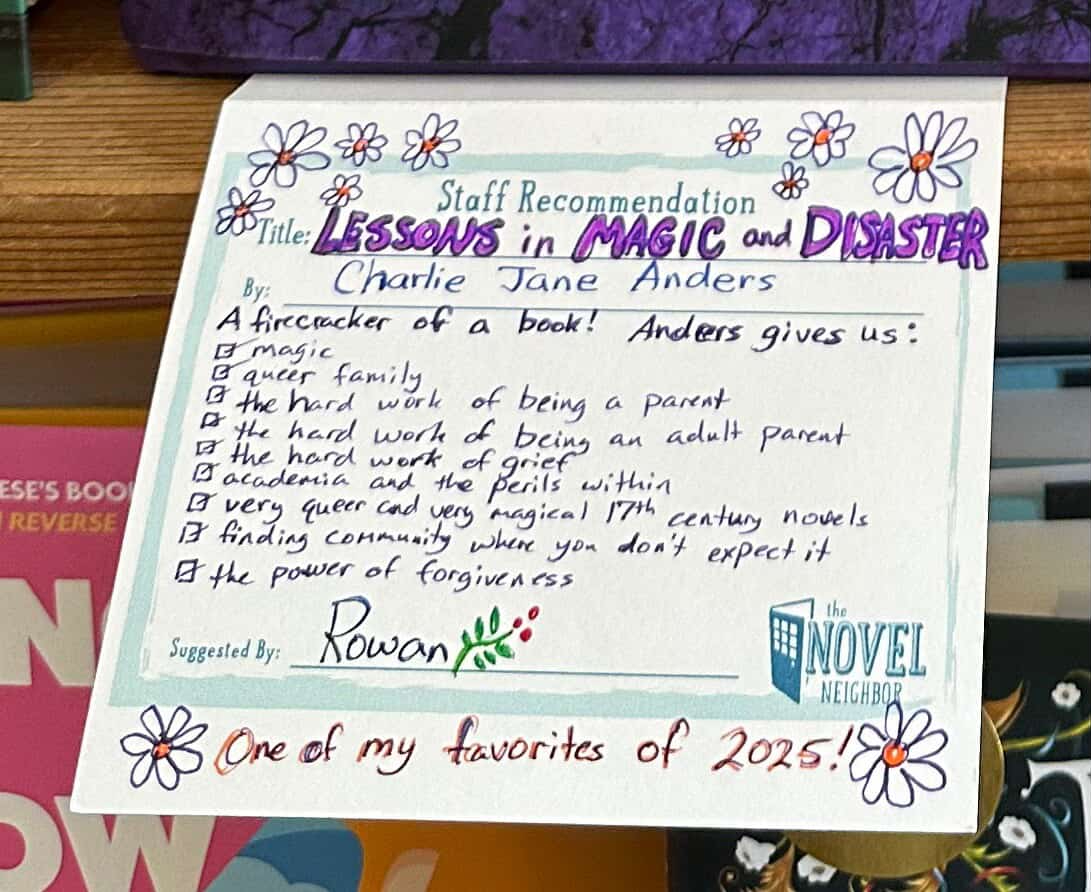 Staff Recommendation
Title: LESSONS in MAGIC and DISASTER
By: Charlie Jane Anders
A firecracker of a book! Anders gives us:
magic
queer family
the hard work of being a parent
the hard work of being an adult parent
the hard work of grief
academia and the perils within
very queer and very magical 17th century novels
finding community where you don't expect it
the power of forgiveness
Suggested By: Rowan
the
NOVEL
NEIGHBOR
One of my favorites of 2025!
ESE'S BOO
REVERSE
N
OW